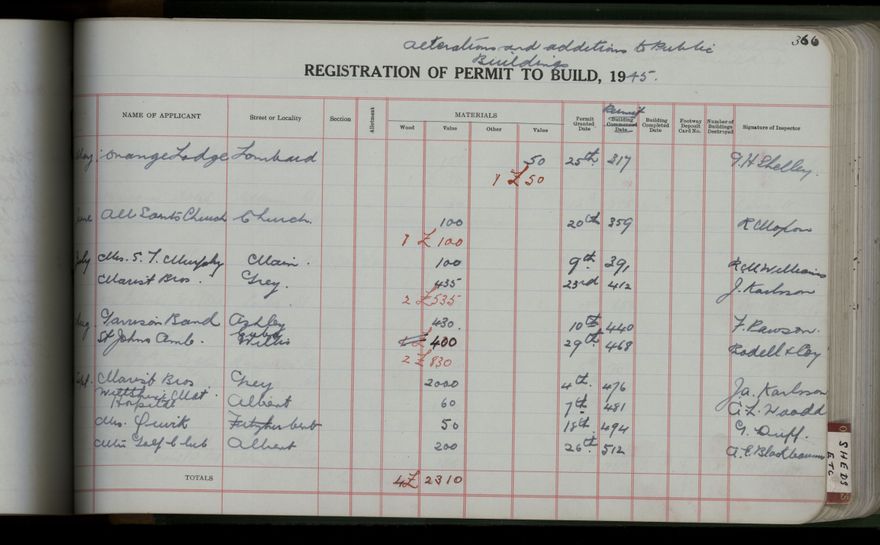 366
Alterations and additions to Public
Buildings
REGISTRATION OF PERMIT TO BUILD, 1945.
NAME OF APPLICANT Street or Locality Section Allotment MATERIALS Wood Value Other Value Permit Granted Date Permit Building Commenced Date Building Completed Date Footway Deposit Card No. Number of Buildings Destroyed Signature of Inspector
Orange Lodge Lombard 50 25th 317 G. H. Shelley.
1 £ 50
All Saints Church Church. 100 20th 359
1 £ 100
Mrs. S. T. Murphy Main. 100 9th 391 R & M Williams
Marist Bros. Grey. 435 23rd 412 J. Karlsson
2 £ 535
Aug. Garrison Band Ashley 430. 10th 440 F. Rawson.
St Johns Amb. Willis 400 29th 468 Rodell & Coy
2 £ 830
Sept. Marist Bros Grey 2000 4th 476 J. A. Karlsson
Hospital Albert 60 7th 481
Mrs. Quirk Fitzherbert 50 18th 494
Golf Club Albert 200 26th 512
TOTALS 4 £ 2310
SHEDS
ETC